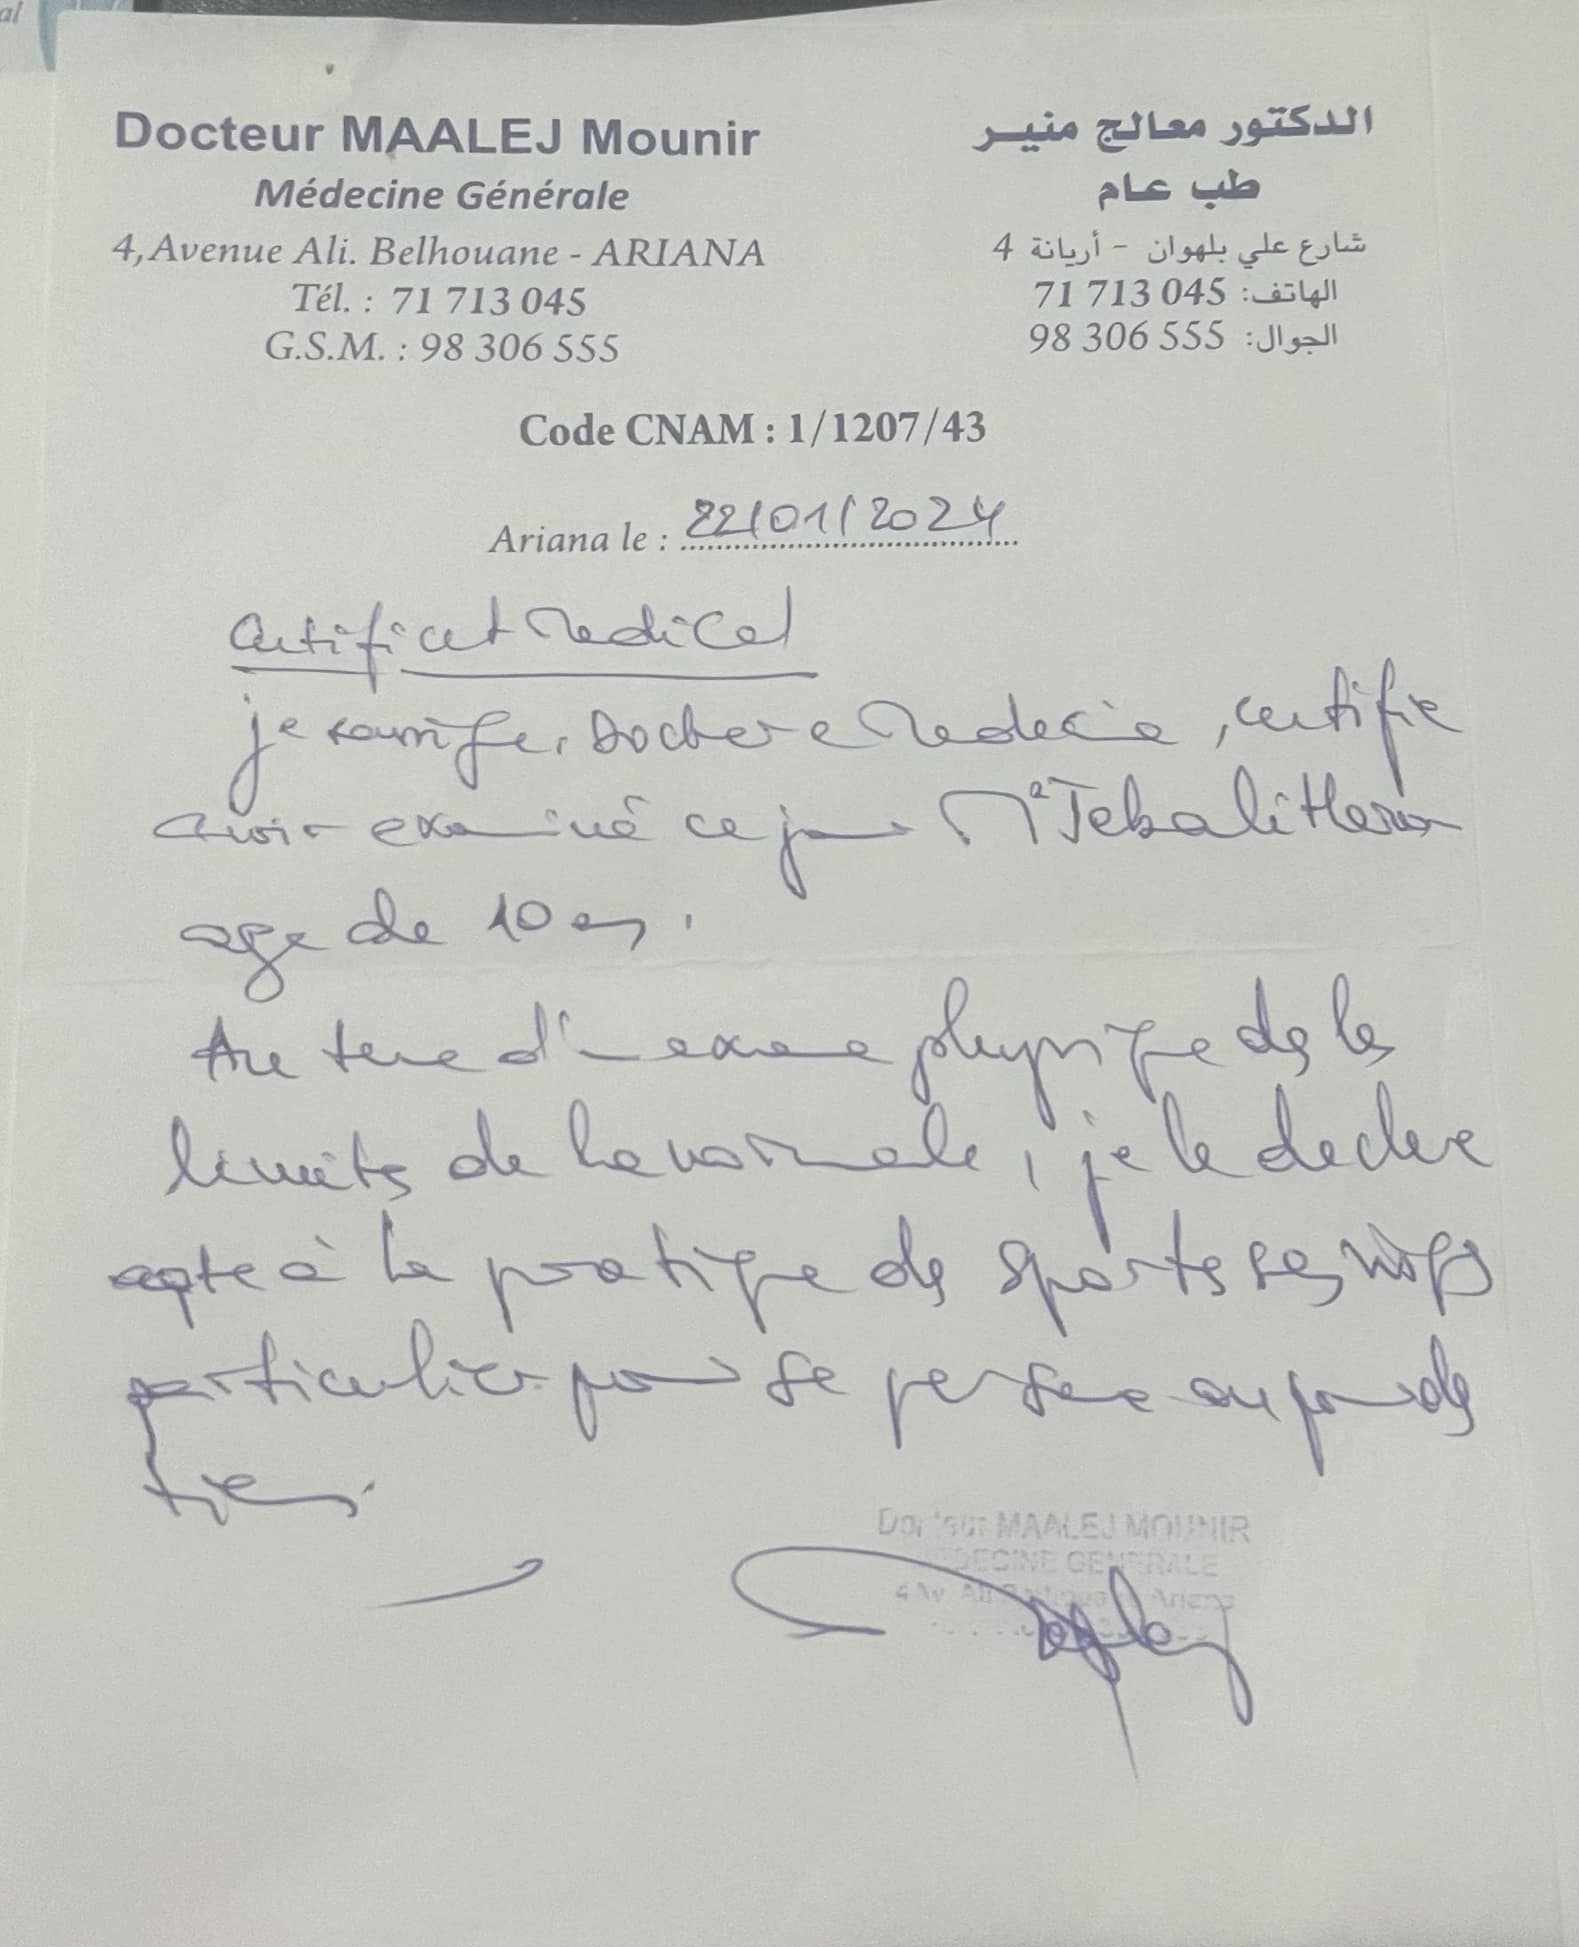 al
Docteur MAALEJ Mounir
Médecine Générale
4, Avenue Ali. Belhouane - ARIANA
Tél. : 71 713 045
G.S.M. : 98 306 555
الدكتور معالج منير
طب عام
4 شارع علي بلهوان - أريانة
الهاتف: 71 713 045
الجوال: 98 306 555
Code CNAM : 1/1207/43
Ariana le : 22/01/2024
Certificat Medical
je soussigné, Docteur en Medecine, certifie
avoir examiné ce jour
age de 10 ans.
Au terme d'un examen physique dans les
limites de la normale, je le declare
apte à la pratique des sports sans risques
particulier pour sa personne ou pour des
tiers.
Docteur MAALEJ MOUNIR
MEDECINE GENERALE
4 Av. Ali Ariana